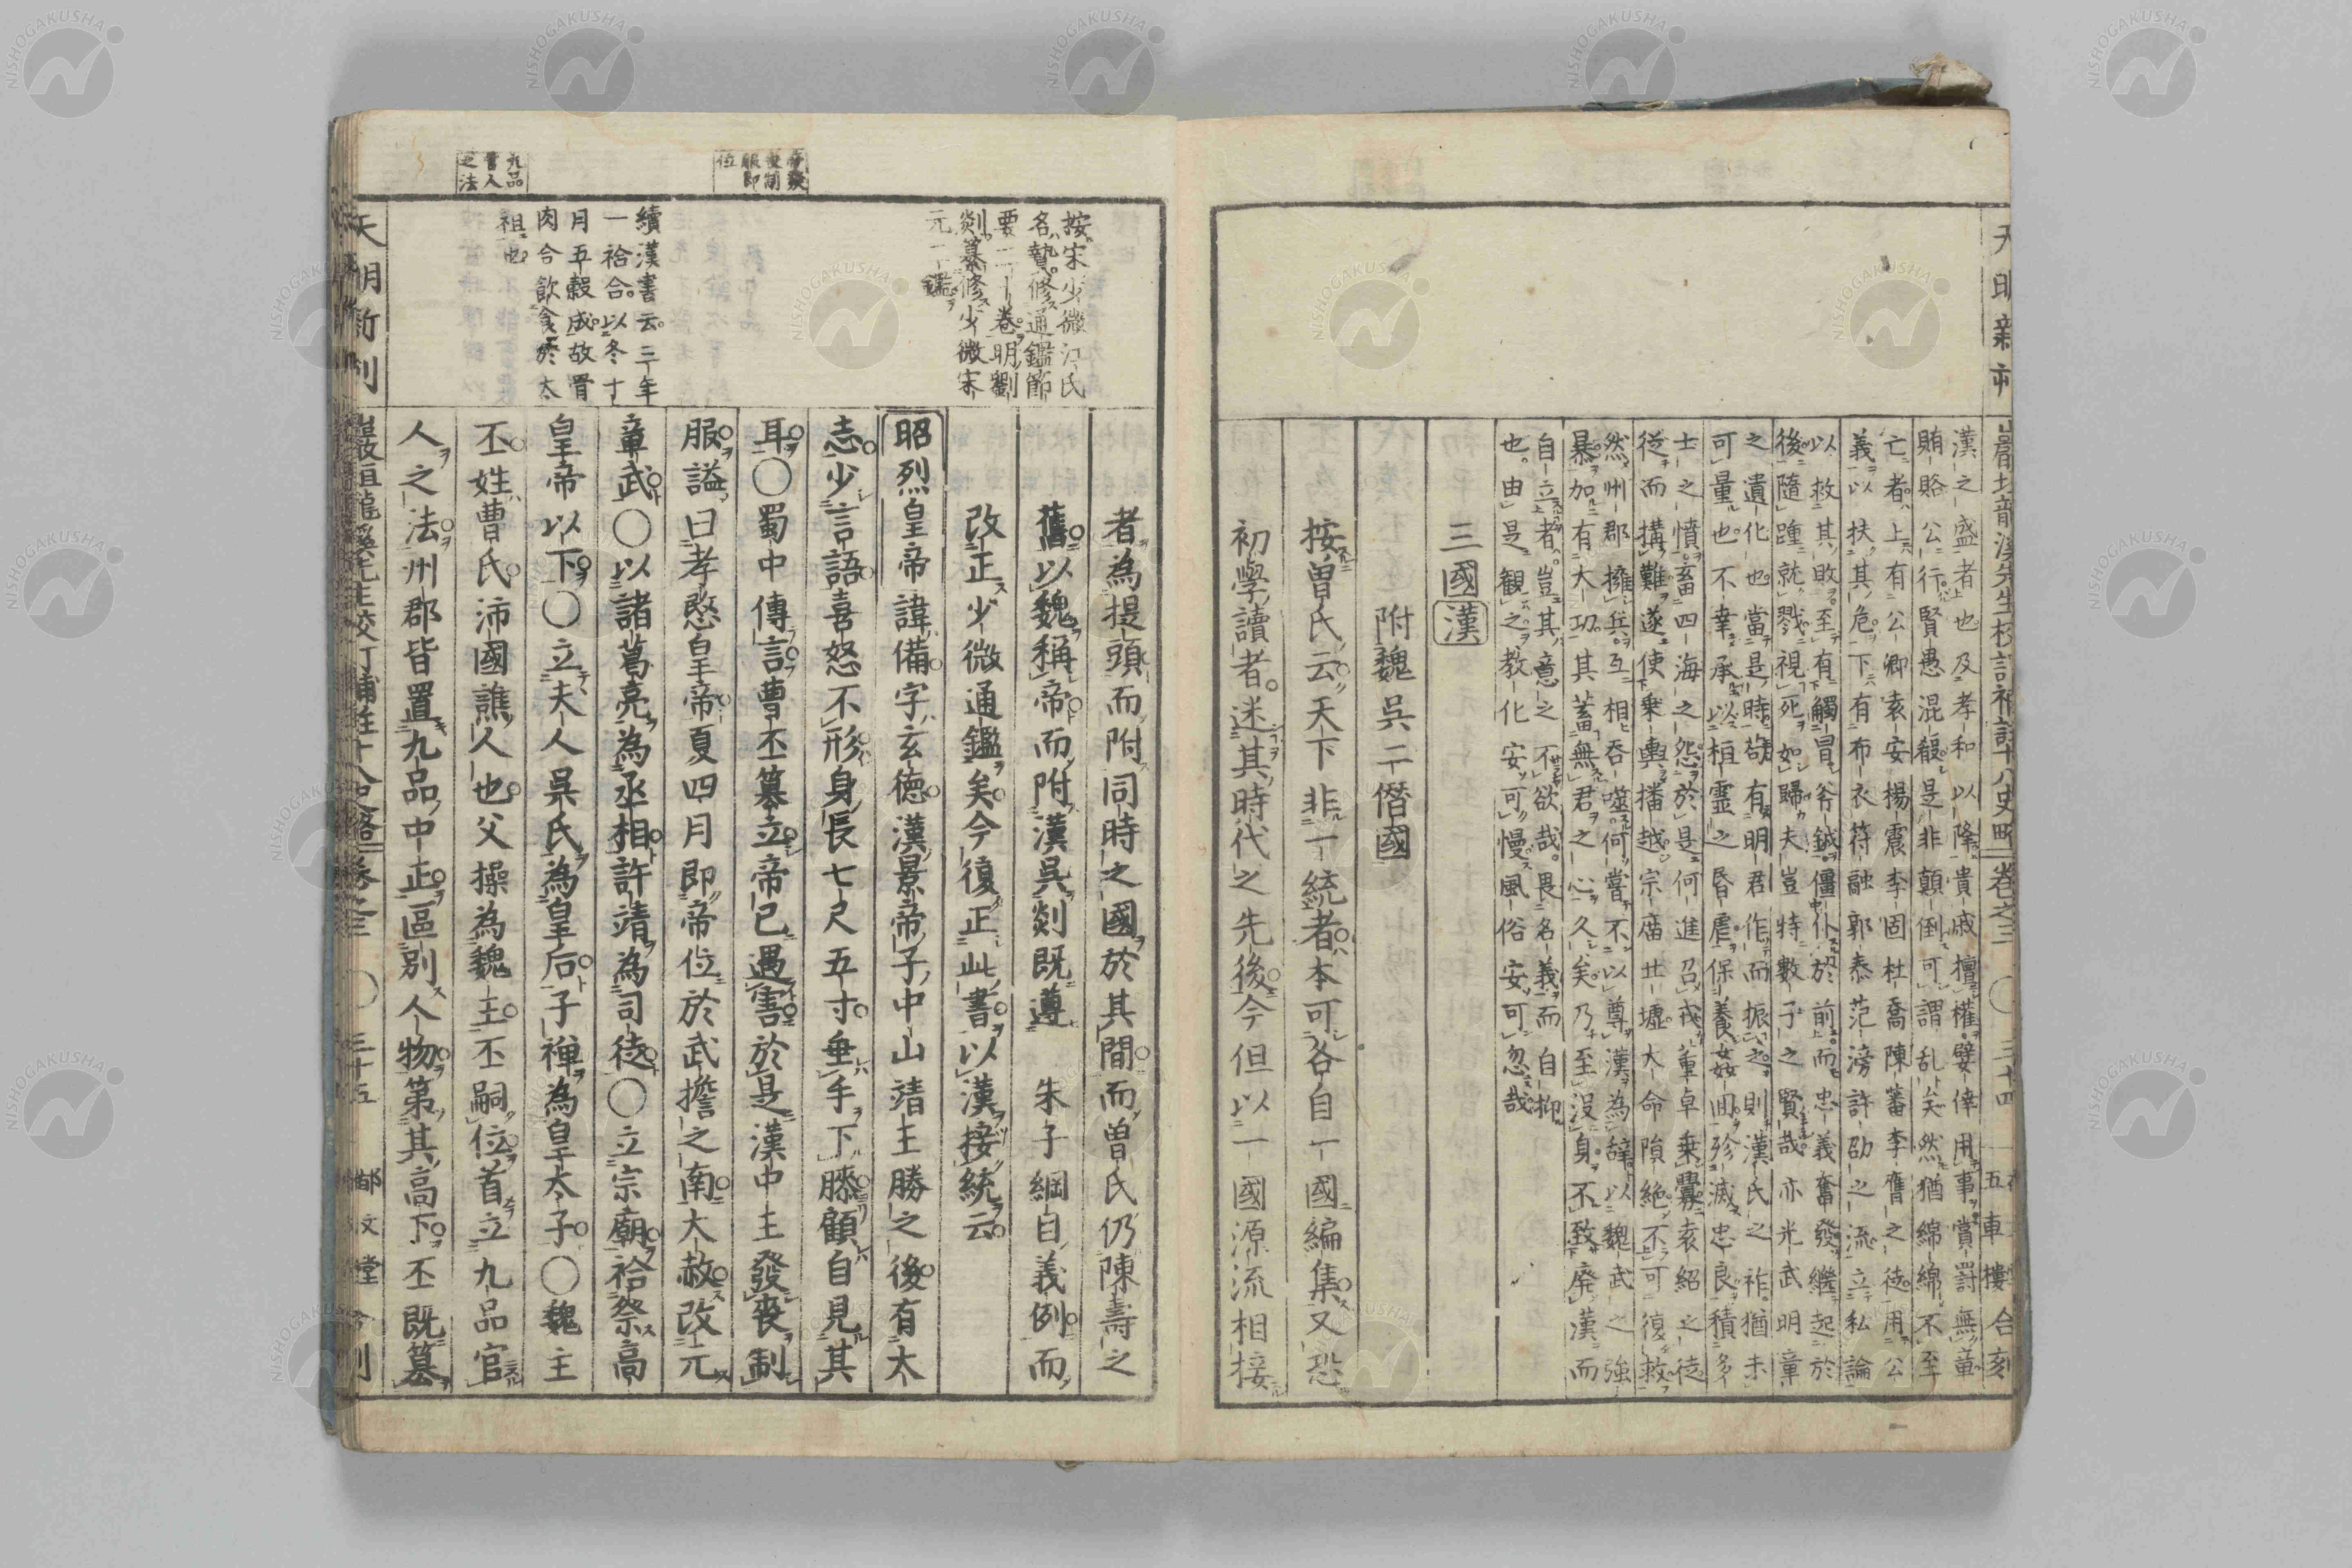 漢之盛者也及孝和以降貴戚擅權嬖倖用事賞罰無章
賄賂公行賢愚混殽是非顛倒可謂乱矣然猶綿綿不至
亡者上有公卿袁安揚震李固杜喬陳蕃李膺之徒用公
義以扶其危下有布衣符融郭泰范滂許劭之流立私論
以救其敗至有觸冒斧鉞僵仆於前而忠義奮發継起於
後隨踵就戮視死如歸夫豈特數子之賢哉亦光武明章
之遺化也當是時苟有明君作而振之則漢氏之祚猶未
可量也不幸承以桓霊之昏虐保養姦囬殄滅忠良積多
士之憤畜四海之怨於是何進召戎董卓乗釁袁紹之徒
従而搆難遂使乗輿播越宗庿丘墟大命隕絶不可復救
然州郡擁兵互相吞噬何嘗不以尊漢為辭以魏武之強
暴加有大功其蓄無君之心久矣乃至没身不致廃漢而
自立者豈其意之不欲哉畏名義而自抑
也由是観之教化安可慢風俗安可忽哉
三國漢
附魏呉二僭國
按曽氏云天下非一統者本可各自一國編集又恐
初學讀者迷其時代之先後今但以一國源流相接
按宋少微江氏
名贄修通鑑節
要二十卷明劉
剡纂修少微宋
元二鑑
續漢書云三年
一祫合以冬十
月五穀成故骨
肉合飲食於太
祖也
九品
官人
之法
者為提頭而附同時之國於其間而曽氏仍陳壽之
舊以魏稱帝而附漢呉剡既遵 朱子綱目義例而
改正少微通鑑矣今復正此書以漢接統云
昭烈皇帝諱備字玄徳漢景帝子中山靖王勝之後有太
志少言語喜怒不形身長七尺五寸垂手下膝顧自見其
耳〇蜀中傳言曹丕簒立帝已遇害於是漢中王發喪制
服謚曰孝愍皇帝夏四月即帝位於武擔之南大赦改元
章武〇以諸葛亮為丞相許靖為司徒〇立宗廟祫祭高
皇帝以下〇立夫人呉氏為皇后子禅為皇太子〇魏主
丕姓曹氏沛國譙人也父操為魏王丕嗣位首立九品官
人之法州郡皆置九品中正區別人物第其高下丕既簒